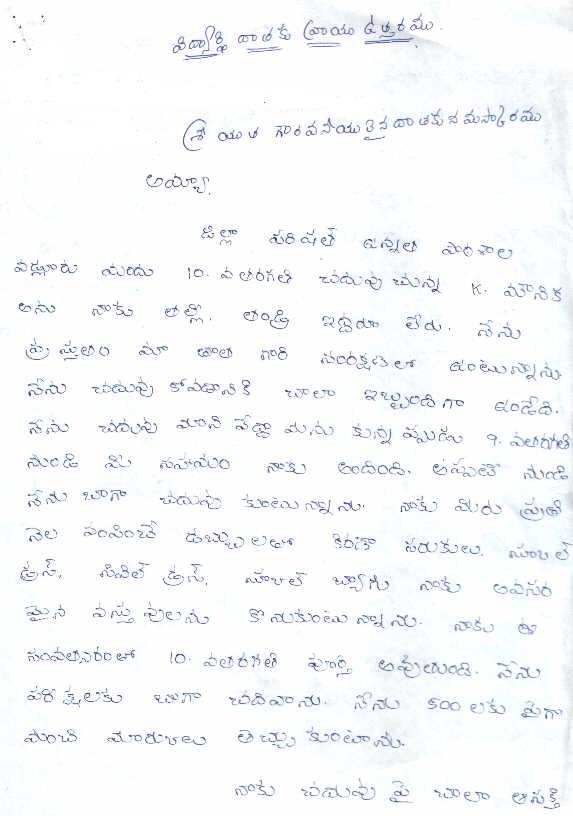 విద్యార్థి దాతకు వ్రాయు ఉత్తరము.
శ్రీ యుత గౌరవనీయులైన దాతకు నమస్కారము
అయ్యా,
జిల్లా పరిషత్ ఉన్నత పాఠశాల
నందు 10. వతరగతి చదువు చున్న K. మౌనిక
అను నాకు తల్లి, తండ్రి ఇద్దరూ లేరు. నేను
ప్రస్తుతం మా తాత గారి సంరక్షణలో ఉంటున్నాను.
నేను చదువు కోవడానికి చాలా ఇబ్బంది గా ఉండేది.
నేను చదువు మాని వేద్దా మను కున్న ప్పుడు 9. వతరగతి
నుండి మీ సహాయం నాకు అందింది. అప్పటి నుండి
నేను బాగా చదువు కుంటున్నాను. నాకు మీరు ప్రతి
నెల పంపించే డబ్బులతో కిరాణా సరుకులు, స్కూల్
డ్రస్, సివిల్ డ్రస్, స్కూల్ బ్యాగు నాకు అవసర
మైన వస్తు వులను కొనుకుంటున్నాను. నాకు ఈ
సంవత్సరంతో 10. వతరగతి పూర్తి అవుతుంది. నేను
పరీక్షలకు బాగా చదివాను. నేను 500 లకు పైగా
మంచి మార్కులు తెచ్చు కుంటాను.
నాకు చదువు పై చాలా ఆసక్తి